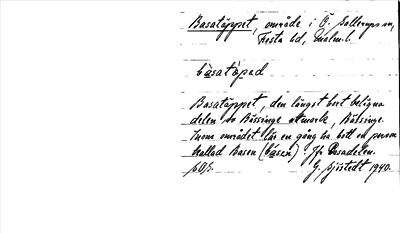 Basatäppet, område i Ö. Sallerups sn,
Frosta hd, Malm. l.
básatöpad
Basatäppet, den längst bort belägna
delen av Rössinge utmark, Rössinge.
Inom området lär en gång ha bott en person
kallad Basen (básen). Jfr Basadelen.
G. Sjöstedt 1940.